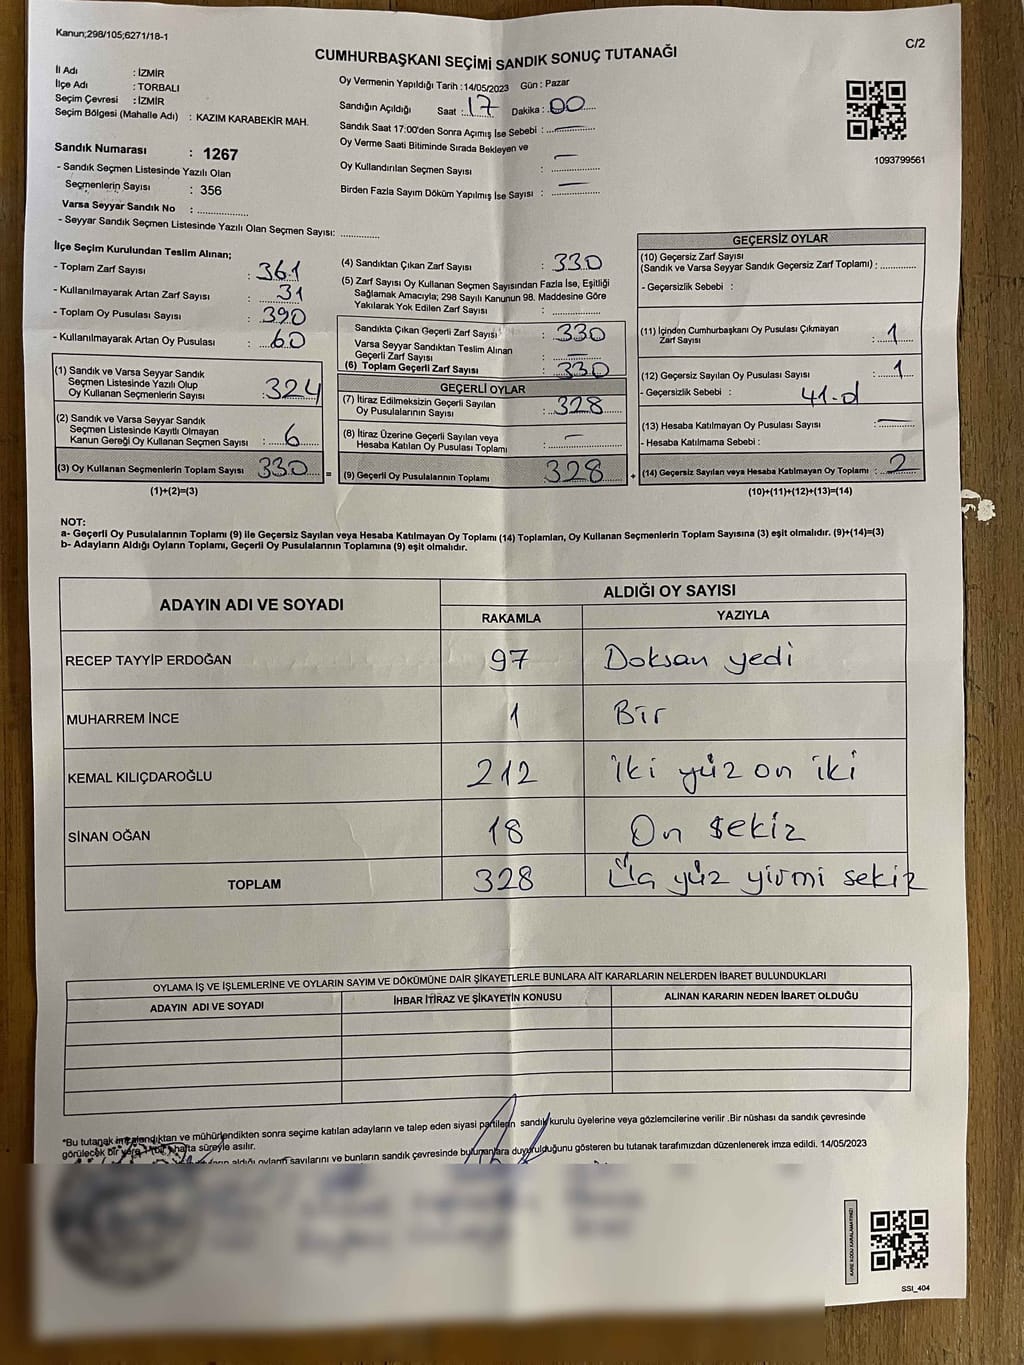 Kanun;298/105;6271/18-1
C/2
CUMHURBAŞKANI SEÇİMİ SANDIK SONUÇ TUTANAĞI
İl Adı : İZMİR
İlçe Adı : TORBALI
Seçim Çevresi : İZMİR
Seçim Bölgesi (Mahalle Adı) : KAZIM KARABEKİR MAH.
Sandık Numarası : 1267
- Sandık Seçmen Listesinde Yazılı Olan
Seçmenlerin Sayısı : 356
Varsa Seyyar Sandık No : ................
- Seyyar Sandık Seçmen Listesinde Yazılı Olan Seçmen Sayısı: ............
Oy Vermenin Yapıldığı Tarih : 14/05/2023 Gün : Pazar
Sandığın Açıldığı Saat : 17 Dakika : 00
Sandık Saat 17:00'den Sonra Açımış İse Sebebi : —
Oy Verme Saati Bitiminde Sırada Bekleyen ve
Oy Kullandırılan Seçmen Sayısı : —
Birden Fazla Sayım Döküm Yapılmış İse Sayısı : —
1093799561
İlçe Seçim Kurulundan Teslim Alınan;
- Toplam Zarf Sayısı : 361
- Kullanılmayarak Artan Zarf Sayısı : 31
- Toplam Oy Pusulası Sayısı : 390
- Kullanılmayarak Artan Oy Pusulası : 60
(1) Sandık ve Varsa Seyyar Sandık
Seçmen Listesinde Yazılı Olup
Oy Kullanan Seçmenlerin Sayısı : 324
(2) Sandık ve Varsa Seyyar Sandık
Seçmen Listesinde Kayıtlı Olmayan
Kanun Gereği Oy Kullanan Seçmen Sayısı : 6
(3) Oy Kullanan Seçmenlerin Toplam Sayısı 330 =
(1)+(2)=(3)
(4) Sandıktan Çıkan Zarf Sayısı : 330
(5) Zarf Sayısı Oy Kullanan Seçmen Sayısından Fazla İse, Eşitliği
Sağlamak Amacıyla; 298 Sayılı Kanunun 98. Maddesine Göre
Yakılarak Yok Edilen Zarf Sayısı : ................
Sandıkta Çıkan Geçerli Zarf Sayısı : 330
Varsa Seyyar Sandıktan Teslim Alınan
Geçerli Zarf Sayısı : —
(6) Toplam Geçerli Zarf Sayısı : 330
GEÇERLİ OYLAR
(7) İtiraz Edilmeksizin Geçerli Sayılan
Oy Pusulalarının Sayısı : 328
(8) İtiraz Üzerine Geçerli Sayılan veya
Hesaba Katılan Oy Pusulası Toplamı : —
(9) Geçerli Oy Pusulalarının Toplamı 328 +
GEÇERSİZ OYLAR
(10) Geçersiz Zarf Sayısı
(Sandık ve Varsa Seyyar Sandık Geçersiz Zarf Toplamı) : ............
- Geçersizlik Sebebi :
(11) İçinden Cumhurbaşkanı Oy Pusulası Çıkmayan
Zarf Sayısı : 1
(12) Geçersiz Sayılan Oy Pusulası Sayısı : 1
- Geçersizlik Sebebi : 41-d
(13) Hesaba Katılmayan Oy Pusulası Sayısı : —
- Hesaba Katılmama Sebebi :
(14) Geçersiz Sayılan veya Hesaba Katılmayan Oy Toplamı : 2
(10)+(11)+(12)+(13)=(14)
NOT:
a- Geçerli Oy Pusulalarının Toplamı (9) ile Geçersiz Sayılan veya Hesaba Katılmayan Oy Toplamı (14) Toplamları, Oy Kullanan Seçmenlerin Toplam Sayısına (3) eşit olmalıdır. (9)+(14)=(3)
b- Adayların Aldığı Oyların Toplamı, Geçerli Oy Pusulalarının Toplamına (9) eşit olmalıdır.
ADAYIN ADI VE SOYADI ALDIĞI OY SAYISI
RAKAMLA YAZIYLA
RECEP TAYYİP ERDOĞAN 97 Doksan yedi
MUHARREM İNCE 1 Bir
KEMAL KILIÇDAROĞLU 212 İki yüz on iki
SİNAN OĞAN 18 On sekiz
TOPLAM 328 Üç yüz yirmi sekiz
OYLAMA İŞ VE İŞLEMLERİNE VE OYLARIN SAYIM VE DÖKÜMÜNE DAİR ŞİKAYETLERLE BUNLARA AİT KARARLARIN NELERDEN İBARET BULUNDUKLARI
ADAYIN ADI VE SOYADI İHBAR İTİRAZ VE ŞİKAYETİN KONUSU ALINAN KARARIN NEDEN İBARET OLDUĞU
*Bu tutanak imzalandıktan ve mühürlendikten sonra seçime katılan adayların ve talep eden siyasi partilerin sandık kurulu üyelerine veya gözlemcilerine verilir .Bir nüshası da sandık çevresinde
görülecek bir yere 1 (bir) hafta süreyle asılır.
aldığı oyların sayılarını ve bunların sandık çevresinde bulunanlara duyurulduğunu gösteren bu tutanak tarafımızdan düzenlenerek imza edildi. 14/05/2023
KARE KODU KARALAMAYINIZ!
SSI_404